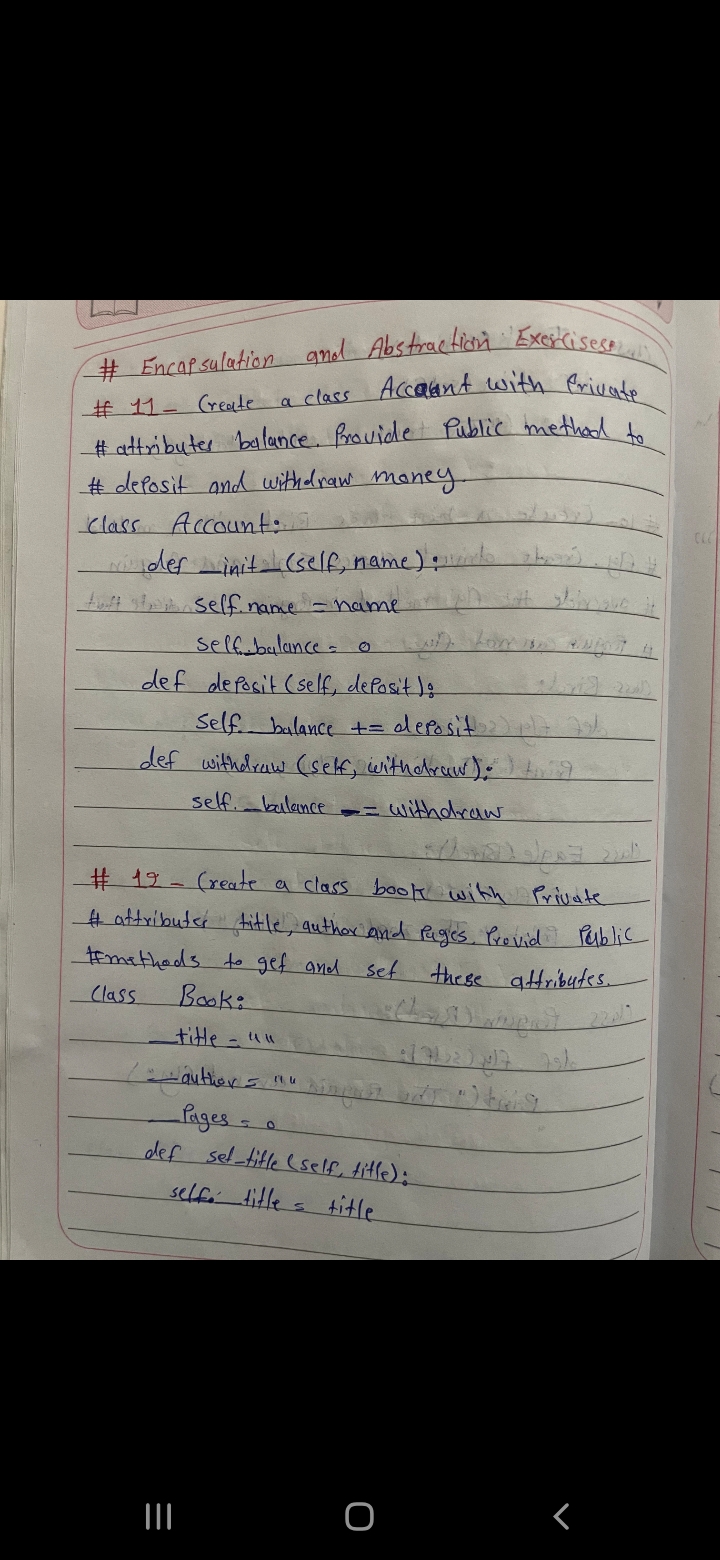 # Encapsulation and Abstraction Exercises
# 11- Create a class Account with Private
# attributes balance. Provide Public method to
# deposit and withdraw money.
class Account:
def __init__(self, name):
self.name = name
self.__balance = 0
def deposit(self, deposit):
self.__balance += deposit
def withdraw(self, withdraw):
self.__balance -= withdraw
# 12- Create a class book with Private
# attributes title, author and Pages. Provid Public
# methods to get and set these attributes.
class Book:
__title = ""
__author = ""
__Pages = 0
def set_title(self, title):
self.__title = title